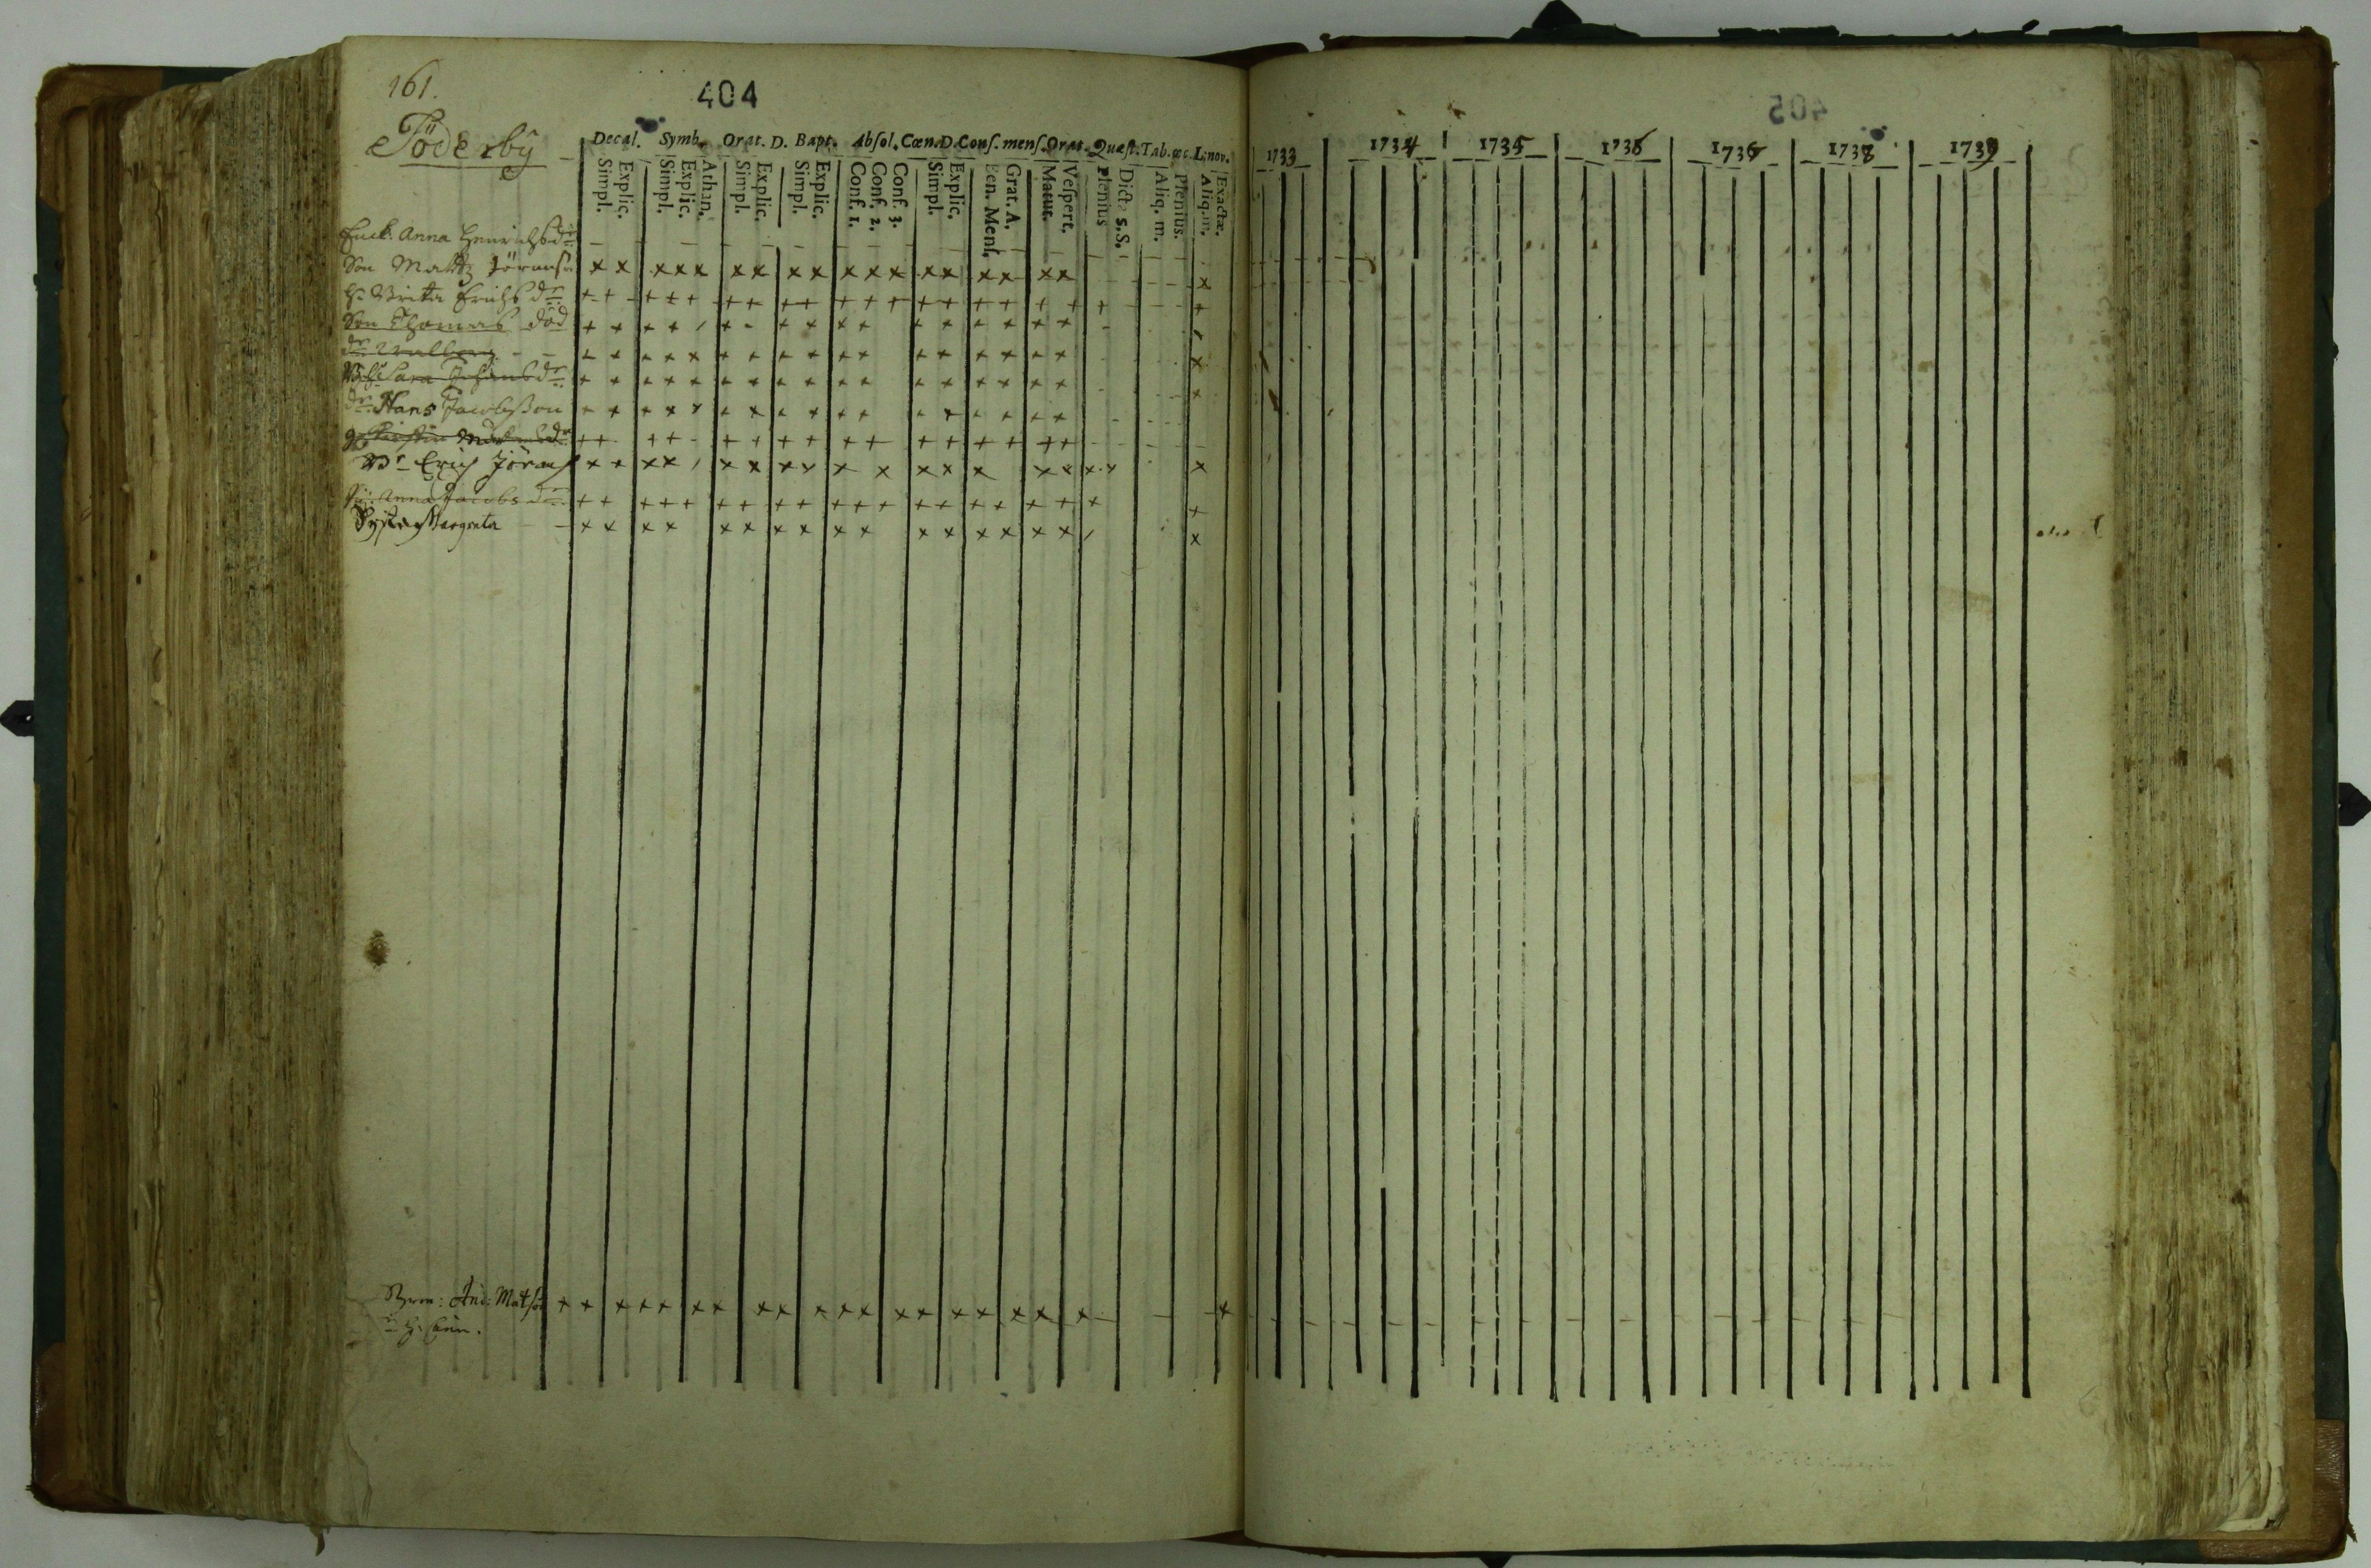 161.
404
Söderbÿ
Decal. Symb. Orat. D. Bapt. Abſol. Cœn. D. Conſ. menſ. Orat. Quæſt. Tab. œc. L. nov.
Simpl. Explic. Simpl. Explic. Athan. Simpl. Explic. Simpl. Explic. Conf. 1. Conf. 2. Conf. 3. Simpl. Explic. Ben. Menſ. Grat. A. Matut. Veſpert. Plenius Dicta S.S. Aliq. m. Plenius. Aliq. m. Exactæ.
Enck. Anna Henrichsdr
Son Matttz Jöransson
H. Brita Erichsdr
Son Thomas död
dr Walborg
Sara Johansdr
dr Hans Jacobsson
Br Erich Jörans
Anna Jacobsdr
Syster Margreta
And: Matsson
405
1733 1734 1735 1736 1736 1738 1739